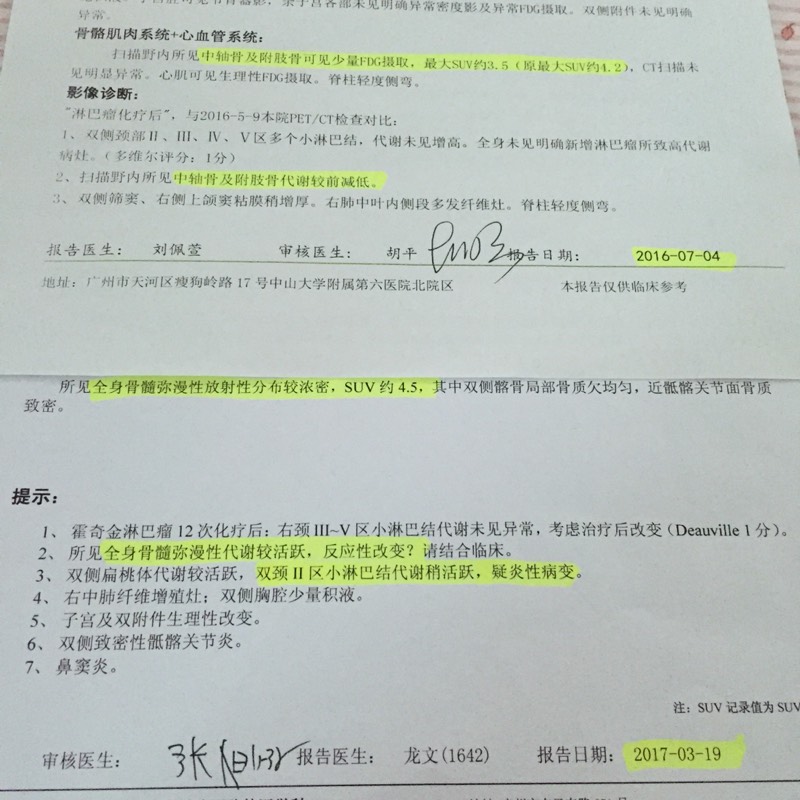 异常。
骨骼肌肉系统+心血管系统:
扫描野内所见中轴骨及附肢骨可见少量FDG摄取，最大SUV约3.5（原最大SUV约4.2），CT扫描未
见明显异常。心肌可见生理性FDG摄取。脊柱轻度侧弯。
影像诊断:
"淋巴瘤化疗后"，与2016-5-9本院PET/CT检查对比:
1、双侧颈部Ⅱ、Ⅲ、Ⅳ、Ⅴ区多个小淋巴结，代谢未见增高。全身未见明确新增淋巴瘤所致高代谢
病灶。（多维尔评分：1分）
2、扫描野内所见中轴骨及附肢骨代谢较前减低。
3、双侧筛窦、右侧上颌窦粘膜稍增厚。右肺中叶内侧段多发纤维灶。脊柱轻度侧弯。
报告医生: 刘佩萱 审核医生: 胡平 报告日期: 2016-07-04
地址：广州市天河区瘦狗岭路17号中山大学附属第六医院北院区 本报告仅供临床参考
所见全身骨髓弥漫性放射性分布较浓密，SUV 约 4.5，其中双侧髂骨局部骨质欠均匀，近骶髂关节面骨质
致密。
提示:
1、霍奇金淋巴瘤 12 次化疗后：右颈 III~V 区小淋巴结代谢未见异常，考虑治疗后改变（Deauville 1 分）。
2、所见全身骨髓弥漫性代谢较活跃，反应性改变？请结合临床。
3、双侧扁桃体代谢较活跃，双颈 II 区小淋巴结代谢稍活跃，疑炎性病变。
4、右中肺纤维增殖灶；双侧胸腔少量积液。
5、子宫及双附件生理性改变。
6、双侧致密性骶髂关节炎。
7、鼻窦炎。
注：SUV 记录值为 SUV
审核医生: 报告医生: 龙文(1642) 报告日期: 2017-03-19